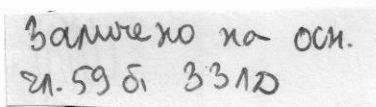 Заличено на осн.
чл. 59 б. ЗЗЛД